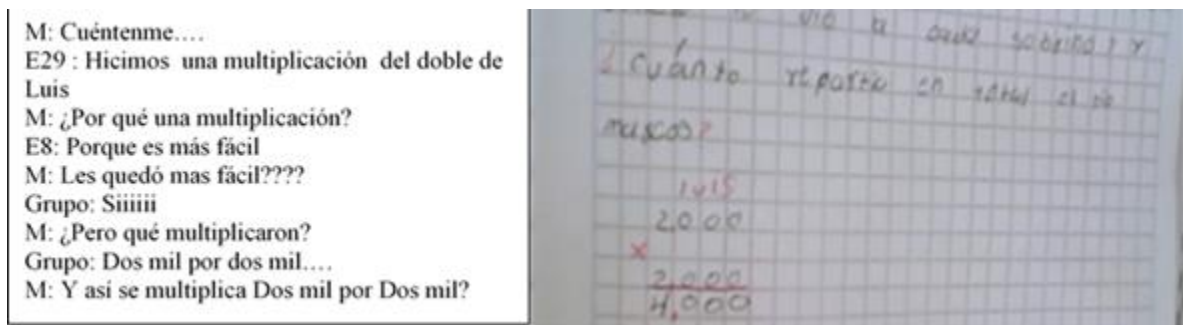 M: Cuéntenme….
E29 : Hicimos una multiplicación del doble de
Luis
M: ¿Por qué una multiplicación?
E8: Porque es más fácil
M: Les quedó mas fácil????
Grupo: Siiiiii
M: ¿Pero qué multiplicaron?
Grupo: Dos mil por dos mil….
M: Y así se multiplica Dos mil por Dos mil?
a cada sobrino? Y
¿Cuánto repartio en total el tio
muscos?
luis
2.000
x
2.000
4.000